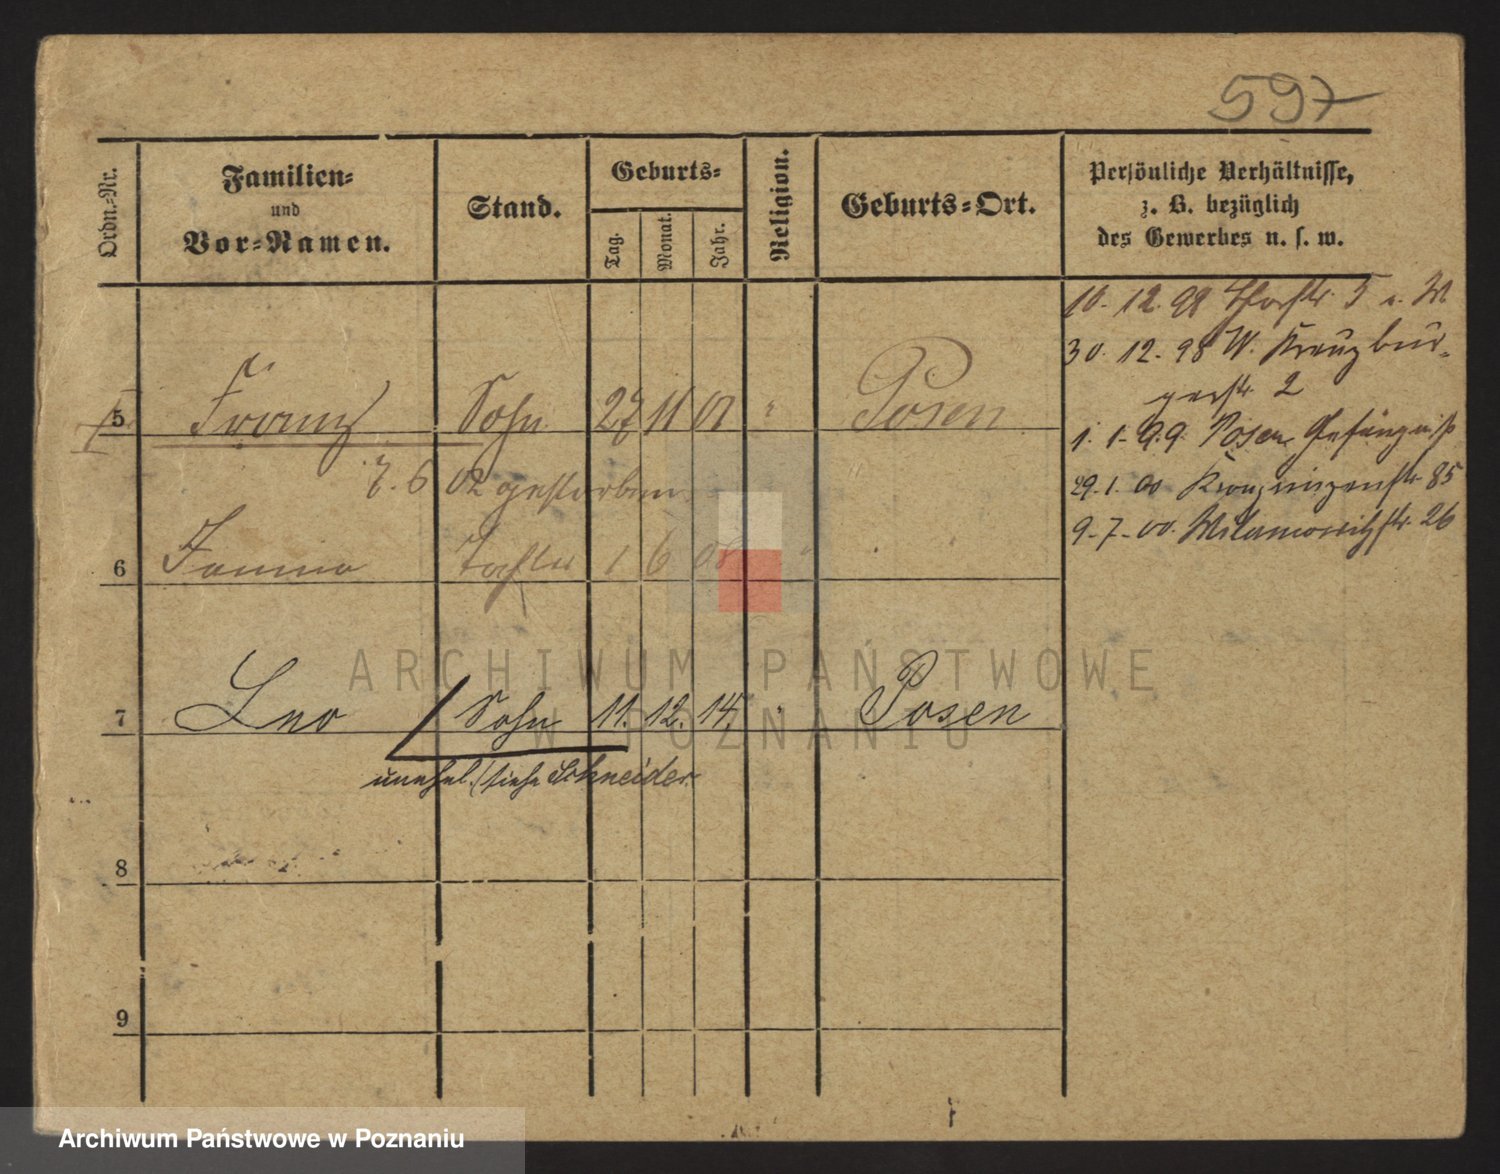 597
Ordn.-Nr.
Familien-
und
Vor-Namen.
Stand.
Geburts-
Tag.
Monat.
Jahr.
Religion.
Geburts-Ort.
Persönliche Verhältnisse,
z. B. bezüglich
des Gewerbes u. s. w.
10. 12. 98 5
30. 12. 98 W. Kreuzbur-
gerstr. 2
1. 1. 99. Posen Gefängniß
29. 1. 00 85
9. 7. 00. Wilamowitzstr. 26
5 Franz Sohn 27 11 01 " Posen
7. 6 02 gestorben
6 Tochter 1 6 " "
7 Leo Sohn 11. 12. 14. " Posen
unehel. (siehe Schneider.
8
9
ARCHIWUM PAŃSTWOWE
W POZNANIU
Archiwum Państwowe w Poznaniu